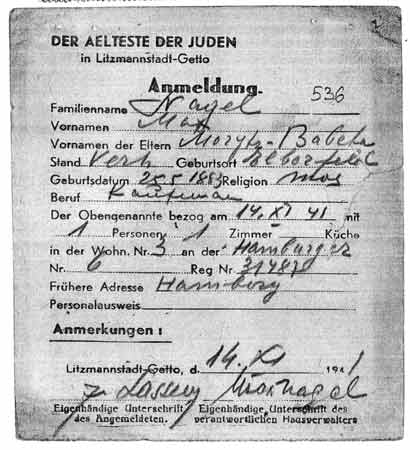 DER AELTESTE DER JUDEN
in Litzmannstadt-Getto
Anmeldung.
536
Familienname Nagel
Vornamen Max
Vornamen der Eltern Morytz-Babeta
Stand Verh Geburtsort Elberfeld
Geburtsdatum 28.5 1883 Religion mos
Beruf Kaufman
Der Obengenannte bezog am 14. XI 41 mit
1 Personen 1 Zimmer Küche
in der Wohn. Nr. 3 an der Hamburger
Nr. 6 Reg Nr.
Frühere Adresse Hamburg
Personalausweis
Anmerkungen :
Litzmannstadt-Getto, d. 14. XI 1941
Max Nagel
Eigenhändige Unterschrift Eigenhändige Unterschrift des
des Angemeldeten. verantwortlichen Hausverwalters